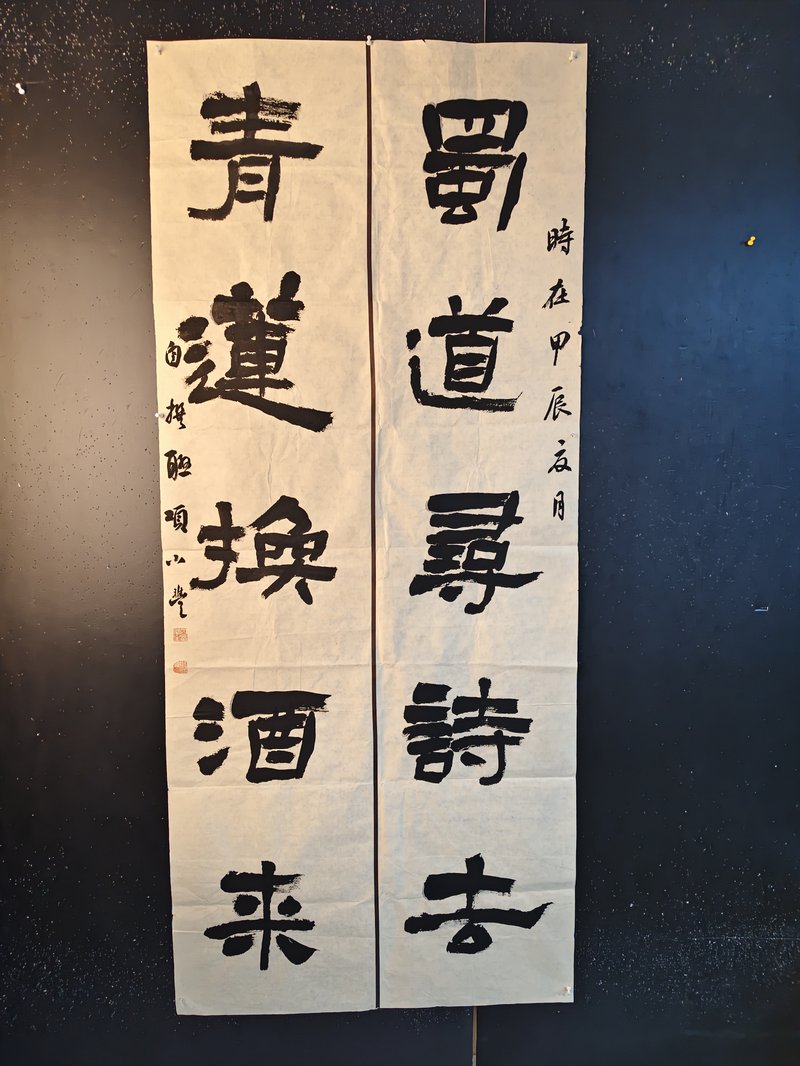 時在甲辰夏月
蜀道尋詩去
青蓮換酒来
自撰聯項小豐